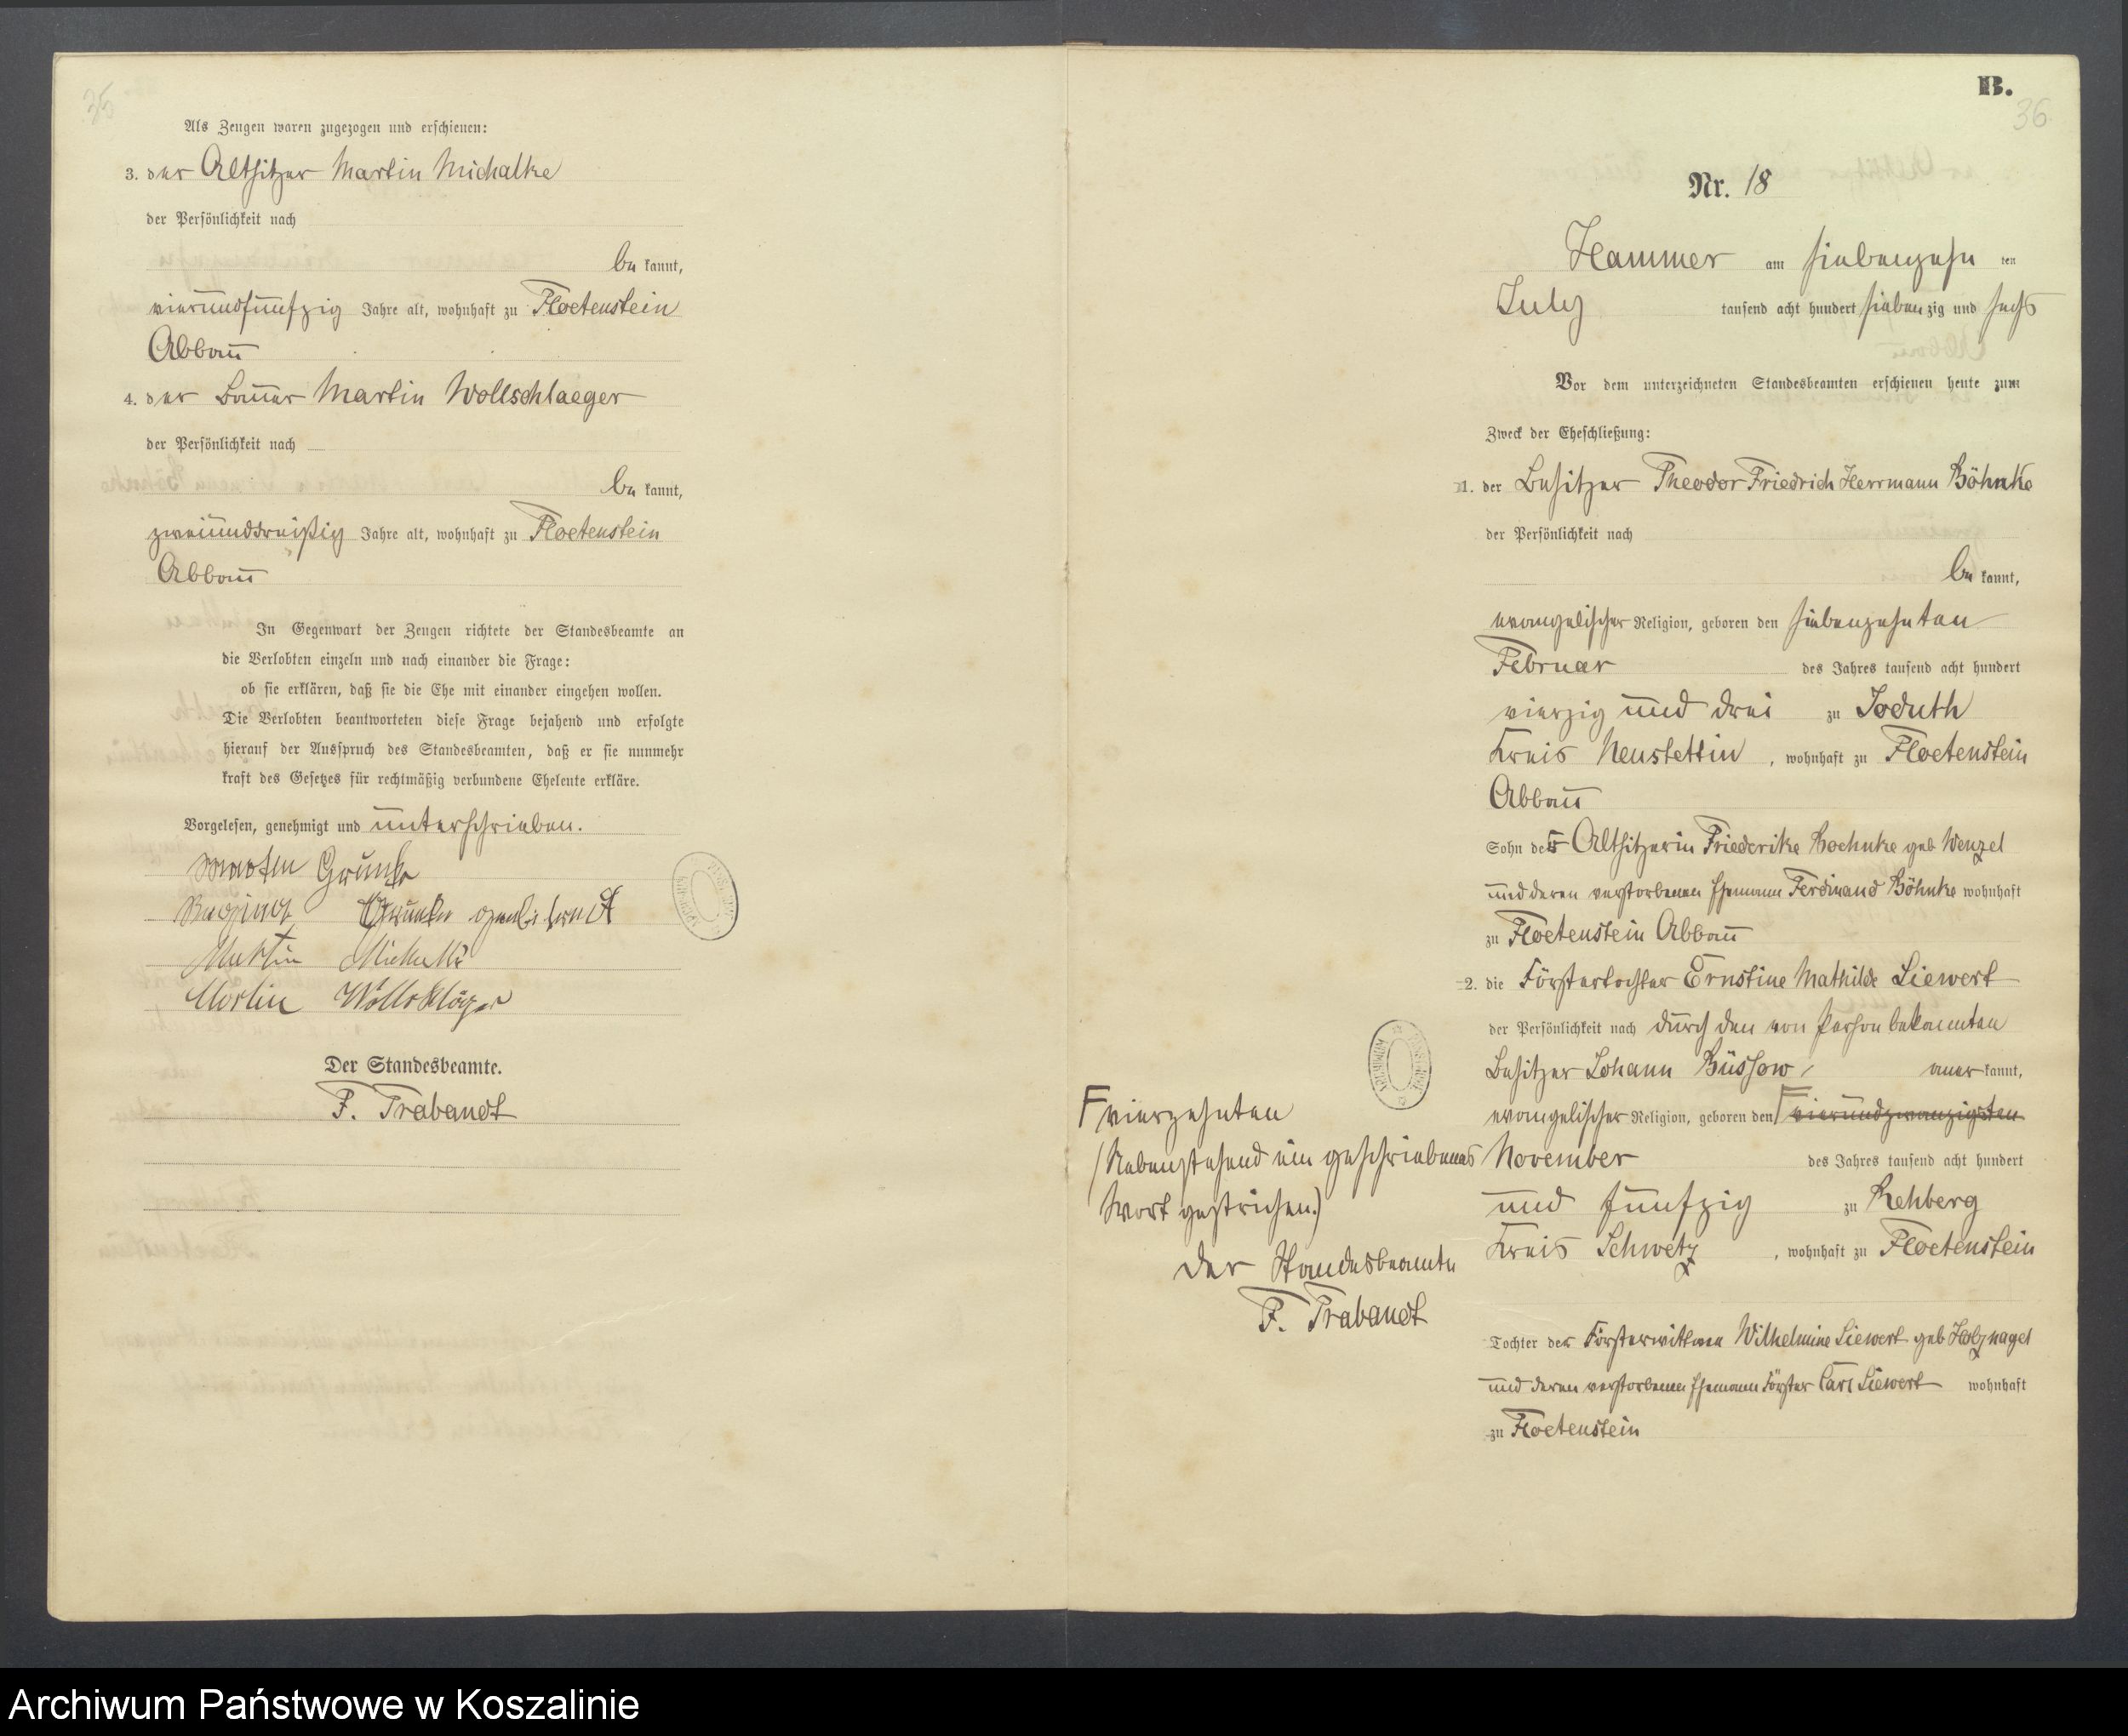 35
Als Zeugen waren zugezogen und erschienen:
3. der Altsitzer Martin Michalke
der Persönlichkeit nach
be kannt,
vierundfünfzig Jahre alt, wohnhaft zu Floetenstein
Abbau
4. der Bauer Martin Wollschlaeger
der Persönlichkeit nach
be kannt,
zweiunddreißig Jahre alt, wohnhaft zu Floetenstein
Abbau
In Gegenwart der Zeugen richtete der Standesbeamte an
die Verlobten einzeln und nach einander die Frage:
ob sie erklären, daß sie die Ehe mit einander eingehen wollen.
Die Verlobten beantworteten diese Frage bejahend und erfolgte
hierauf der Ausspruch des Standesbeamten, daß er sie nunmehr
kraft des Gesetzes für rechtmäßig verbundene Eheleute erkläre.
Vorgelesen, genehmigt und unterschrieben.
Martin
Martin Michalke
Martin Wollschläger
Der Standesbeamte.
F. Trabandt
B.
36
Nr. 18
Hammer am siebenzehn ten
July tausend acht hundert sieben zig und sechs
Vor dem unterzeichneten Standesbeamten erschienen heute zum
Zweck der Eheschließung:
1. der Besitzer Theodor Friedrich Herrmann Böhnke
der Persönlichkeit nach
be kannt,
evangelischer Religion, geboren den siebenzehnten
Februar des Jahres tausend acht hundert
vierzig und drei zu Soduth
Kreis Neustettin, wohnhaft zu Floetenstein
Abbau
Sohn der Altsitzerin Friederike Boehnke geb Wenzel
und deren verstorbenen Ehemann Ferdinand Böhnke wohnhaft
zu Floetenstein Abbau
2. die Förstertochter Ernstine Mathilde Liewert
der Persönlichkeit nach durch den von Person bekannten
Besitzer Johann Büssow, aner kannt,
evangelischer Religion, geboren den ⌈ vierundzwanzigsten
November des Jahres tausend acht hundert
und fünfzig zu Rehberg
Kreis Schwetz, wohnhaft zu Floetenstein
Tochter der Försterwittwe Wilhelmine Liewert geb Holznagel
und deren verstorbenen Ehemann Förster Carl Liewert wohnhaft
zu Floetenstein
⌈ vierzehnten
(Nebenstehend ein geschriebenes
Wort gestrichen.)
Der Standesbeamte
F. Trabandt
Archiwum Państwowe w Koszalinie